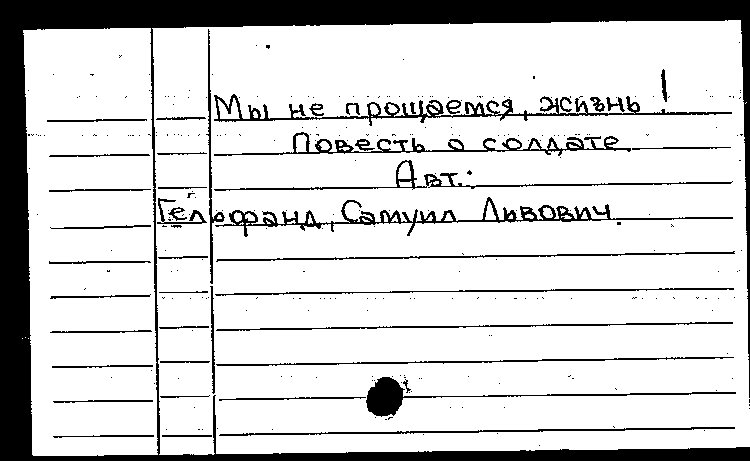 Мы не прощаемся, жизнь!
Повесть о солдате.
Авт.:
Гельфанд, Самуил Львович.